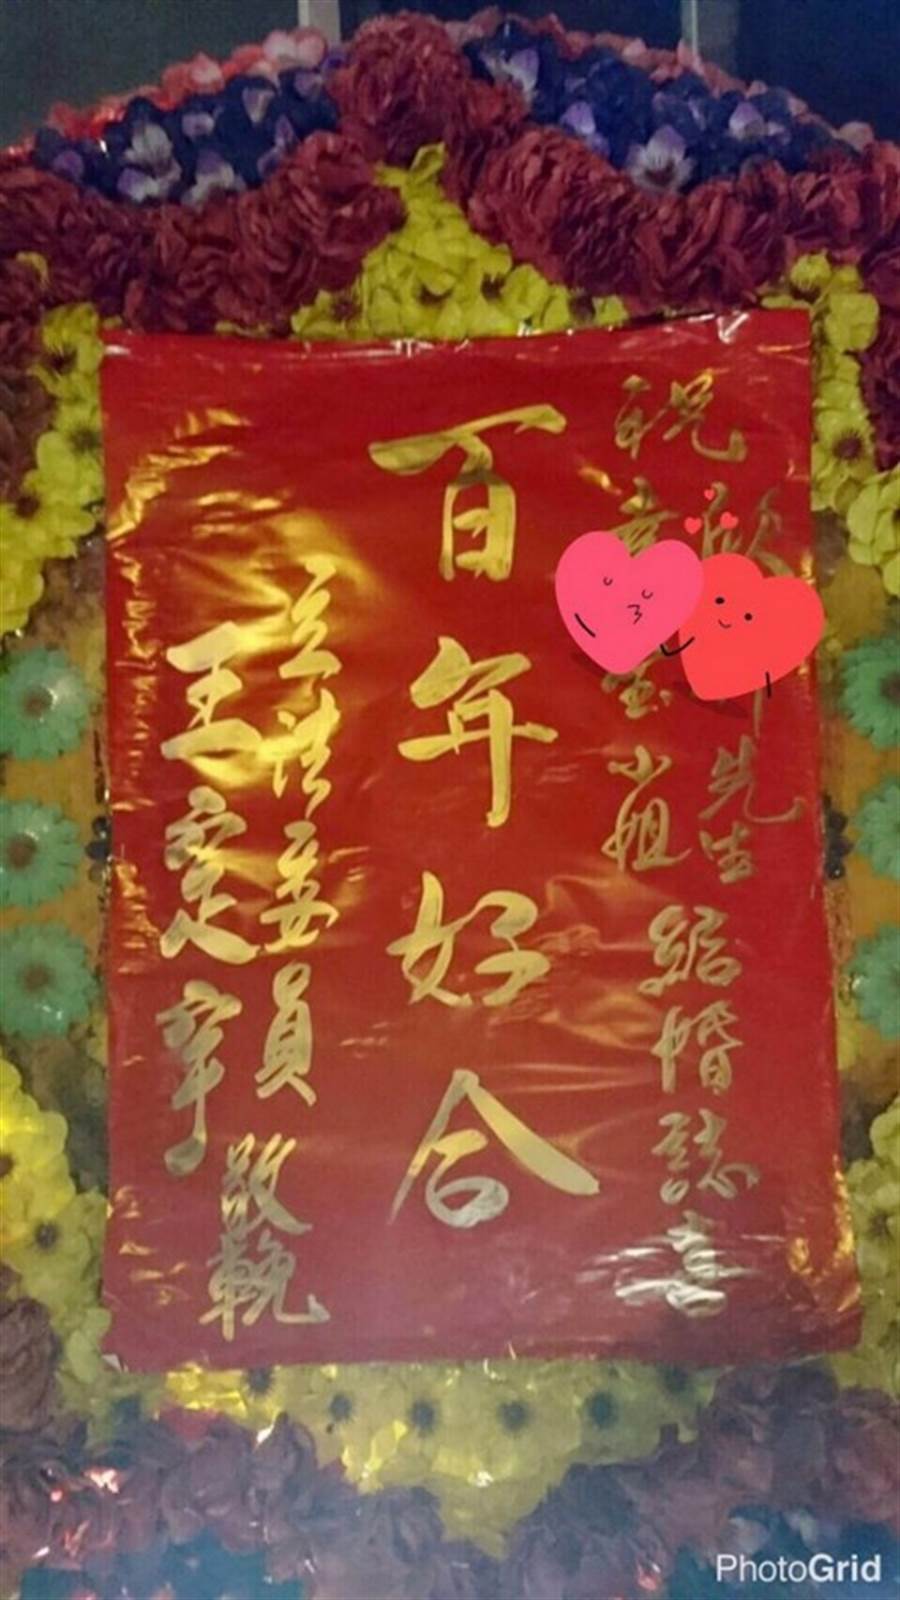 祝
欣 先生
小姐
結婚誌喜
百年好合
立法委員
王定宇
敬輓
PhotoGrid